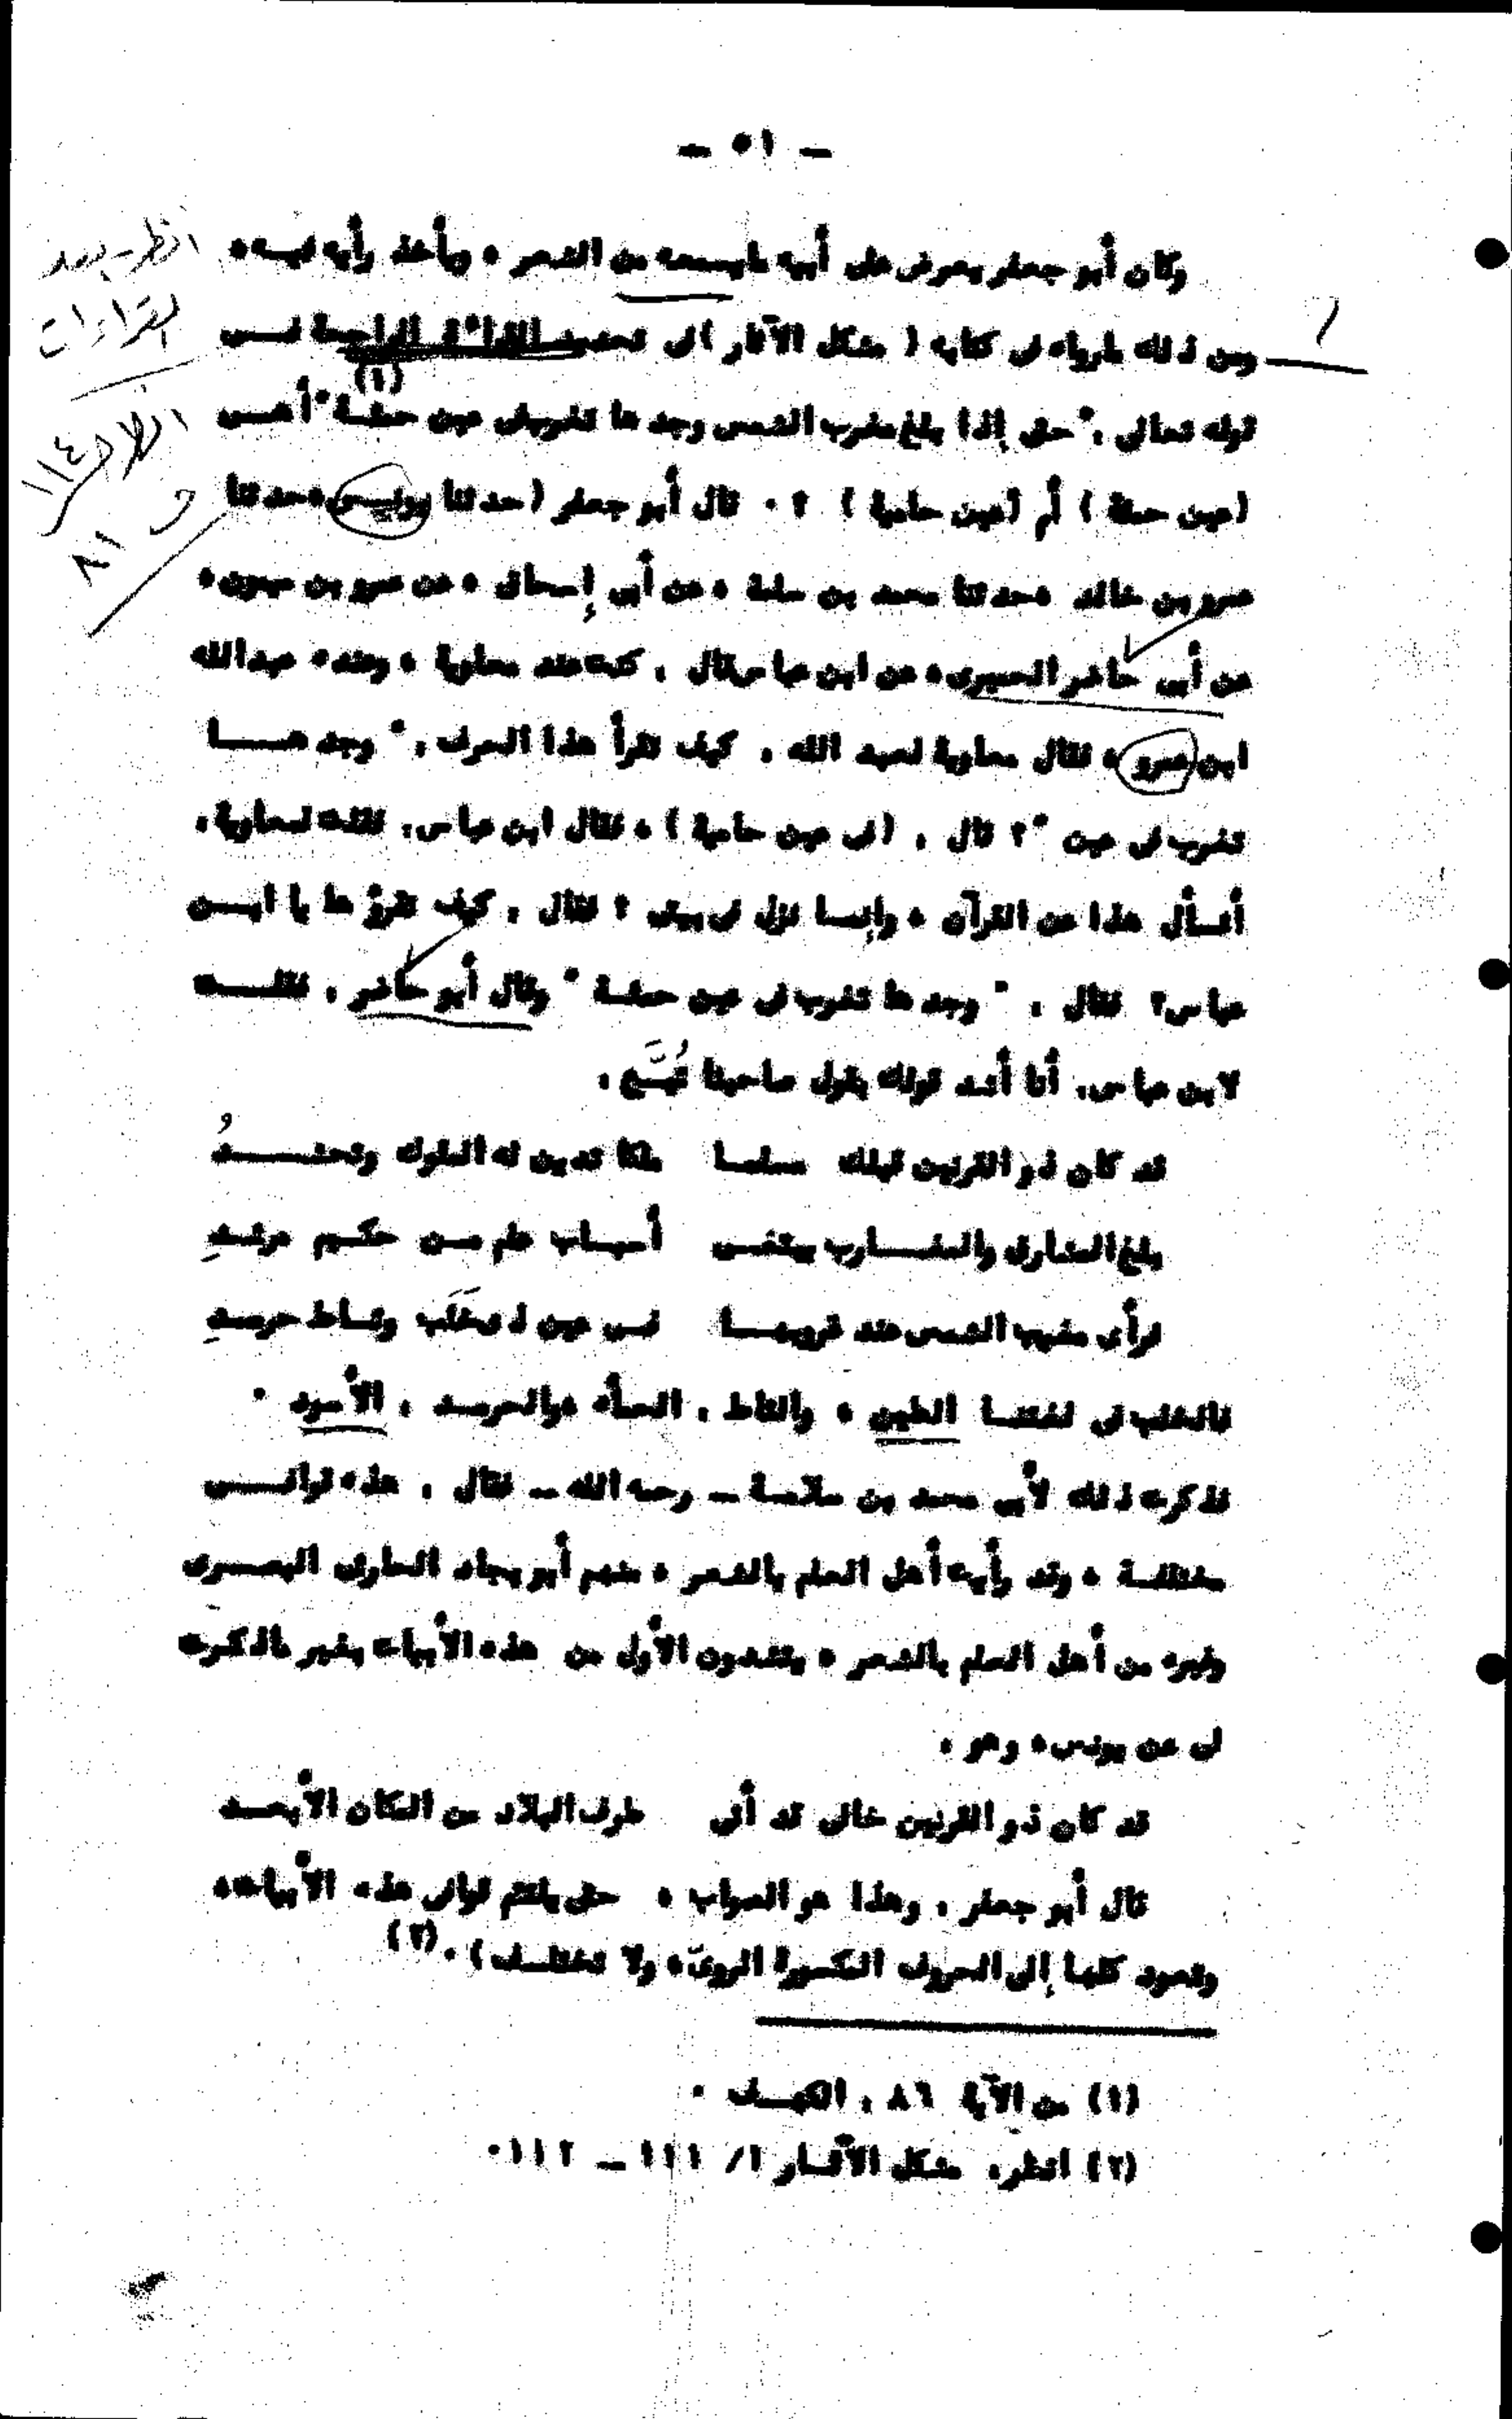 - ٥١ -
وكان أبو جعفر يعرض على أبيه مايسمعه من الشعر ، ويأخذ رأيه فيـه،
ومن ذلك مارواه فى كتابه ( مشكل الآثار ) فى تحديد القراءة الراجحة فـى
قوله تعالى : "حتى إذا بلغ مغرب الشمس وجدها تغرب فى عين حمئـة" (١) أهـى
(عين حمئة ) أم (عين حامية ) ؟ . قال أبو جعفر (حدثنا يونـس ،حدثنا
عمرو بن خالد ،حدثنا محمد بن سلمة ،عن أبى إسحاق ، عن عمرو بن ميمون،
عن أبى حاضر الحميرى، عن ابن عباس قال : كنت عند معاوية ، وعنده عبدالله
ابن عمرو ، فقال معاوية لعبد الله : كيف تقرأ هذا الحرف : " وجدهـــا
تغرب فى عين " ؟ قال : (فى عين حامية ) ، فقال ابن عباس: فقلت لمعاوية:
أتسأل هذا عن القرآن ، وإنمـا نزل فى بيتى ؟ فقال : كيف تقرؤها يا ابــن
عباس؟ فقال : " وجدها تغرب فى عين حمئـة " وقال أبو حاضر : فقلــت
لابن عباس: أنا أشد قولك بقول صاحبنا تُبَّـع :
قد كان ذو القرنين قبلك مسلمـا ملكا تدين له الملوك وتحشــــدُ
بلغ المشارق والمغــارب يبتغـى أسبـاب علم مـن حكـيم مرشـدِ
فرأى مغيب الشمس عند غروبهــا فـى عين ذى خَلَب وثـاط حرمـدِ
فالخلب فى لغتنـا الطين ، والثاط : الحمأة ،والحرمـد : الأسود .
فذكرت ذلك لأبى محمد بن سلامـة - رحمه الله - فقال : هذه قوافــى
مختلفـة ، وقد رأيت أهل العلم بالشعر ، منهم أبو بجاد الحارثى البصـرى
وغيره من أهل العلم بالشعر ، ينشدون الأول من هذه الأبيات بغير ماذكرت
لى عن يونس، وهو :
قد كان ذو القرنين خالى قد أتى طرف البلاد من المكان الأبعــد
قال أبو جعفر : وهذا هو الصواب ، حتى يلتئم قوافى هذه الأبيات،
وتعود كلها إلى الحروف المكسورة الروىّ، ولا تختلـف) . (٢)
(١) من الآية ٨٦ : الكهـف .
(٢) انظر: مشكل الآثـار ١/ ١١١ - ١١٢.
انظر بعد
القراءات
١١٤
٨١